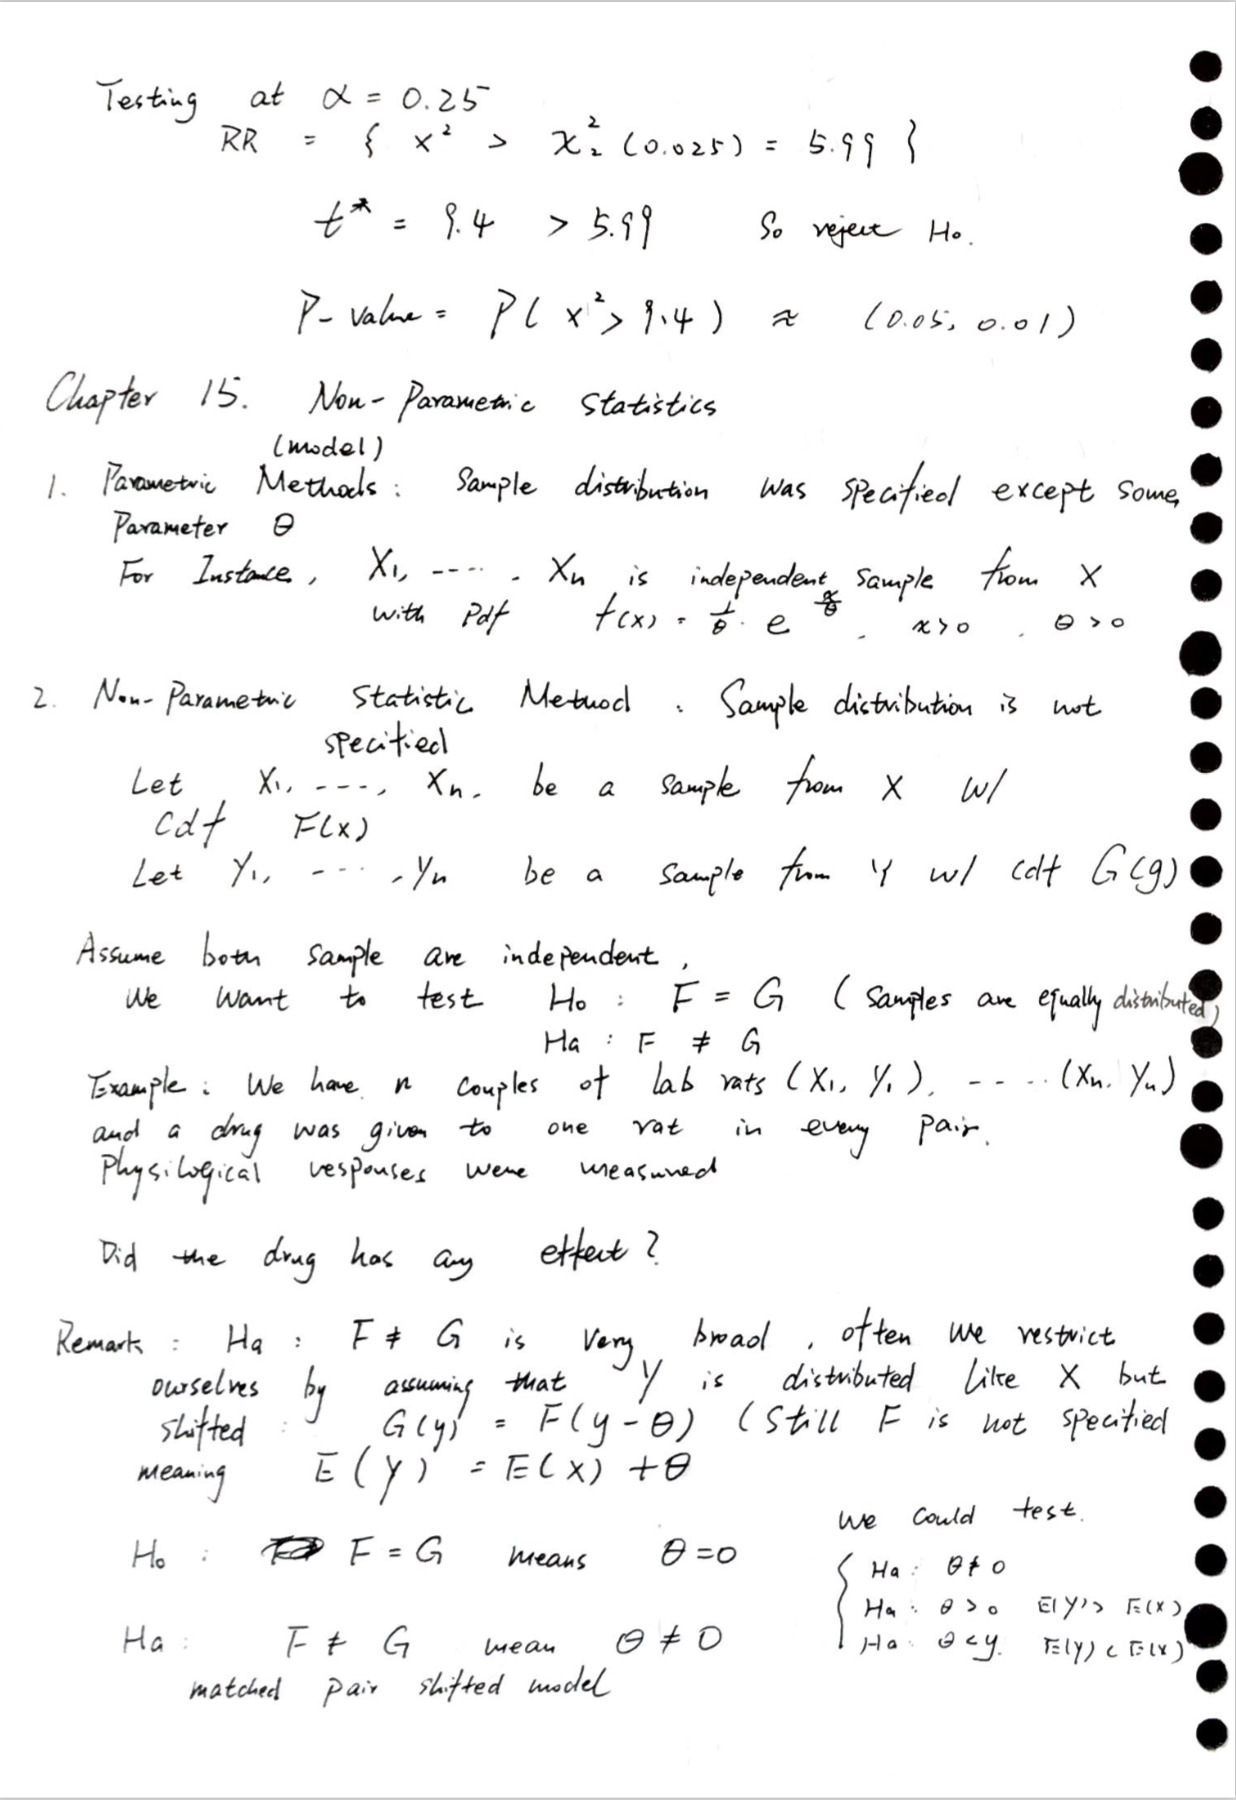 Testing at α = 0.25
RR = { x² > χ²₂ (0.025) = 5.99 }
t* = 9.4 > 5.99 So reject Ho.
P-value = P( x² > 9.4 ) ≈ (0.05, 0.01)
Chapter 15. Non-Parametric Statistics
(model)
1. Parametric Methods: Sample distribution was specified except some
Parameter θ
For Instance, X₁, ---- . Xn is independent sample from X
with Pdf f(x) = 1/θ · e^(x/θ) . x>0 . θ>0
2. Non-Parametric Statistic Method : Sample distribution is not
specified
Let X₁, ---, Xn. be a sample from X w/
cdf F(x)
Let Y₁, --- , Yn be a sample from Y w/ cdf G(g)
Assume both sample are independent,
We want to test Ho : F = G ( Samples are equally distributed)
Ha : F ≠ G
Example: We have n couples of lab rats (X₁, Y₁), ---- (Xn. Yn)
and a drug was given to one rat in every pair.
Physilogical responses were measured
Did the drug has any effect?
Remark : Ha : F ≠ G is very broad, often we restrict
ourselves by assuming that Y is distributed like X but
shifted : G(y) = F(y-θ) (Still F is not specified
meaning E(Y) = E(X) + θ
Ho : F = G means θ=0
Ha : F ≠ G mean θ ≠ 0
matched pair shifted model
We could test.
Ha : θ ≠ 0
Ha : θ > 0 E(Y) > E(X)
Ha : θ < y. E(Y) < E(X)